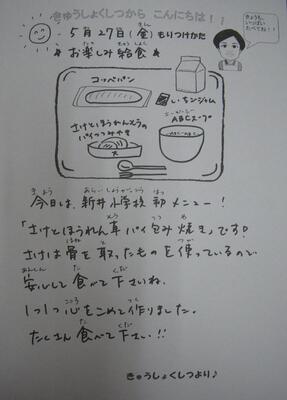 きゅうしょくしつから こんにちは！！
5月27日(金)もりつけかた
★お楽しみ給食★
きょうも、
いっぱい
たべてね！！
コッペパン
いちごジャム
さけとほうれんそうの
パイつつみやき
ABCスープ
今日は、新井小学校 初 メニュー！
「さけとほうれん草パイ包み焼き」です！
さけは骨を取ったものを使っているので
安心して食べて下さいね。
1つ1つ心をこめて作りました。
たくさん食べて下さい！！
きゅうしょくしつより♪